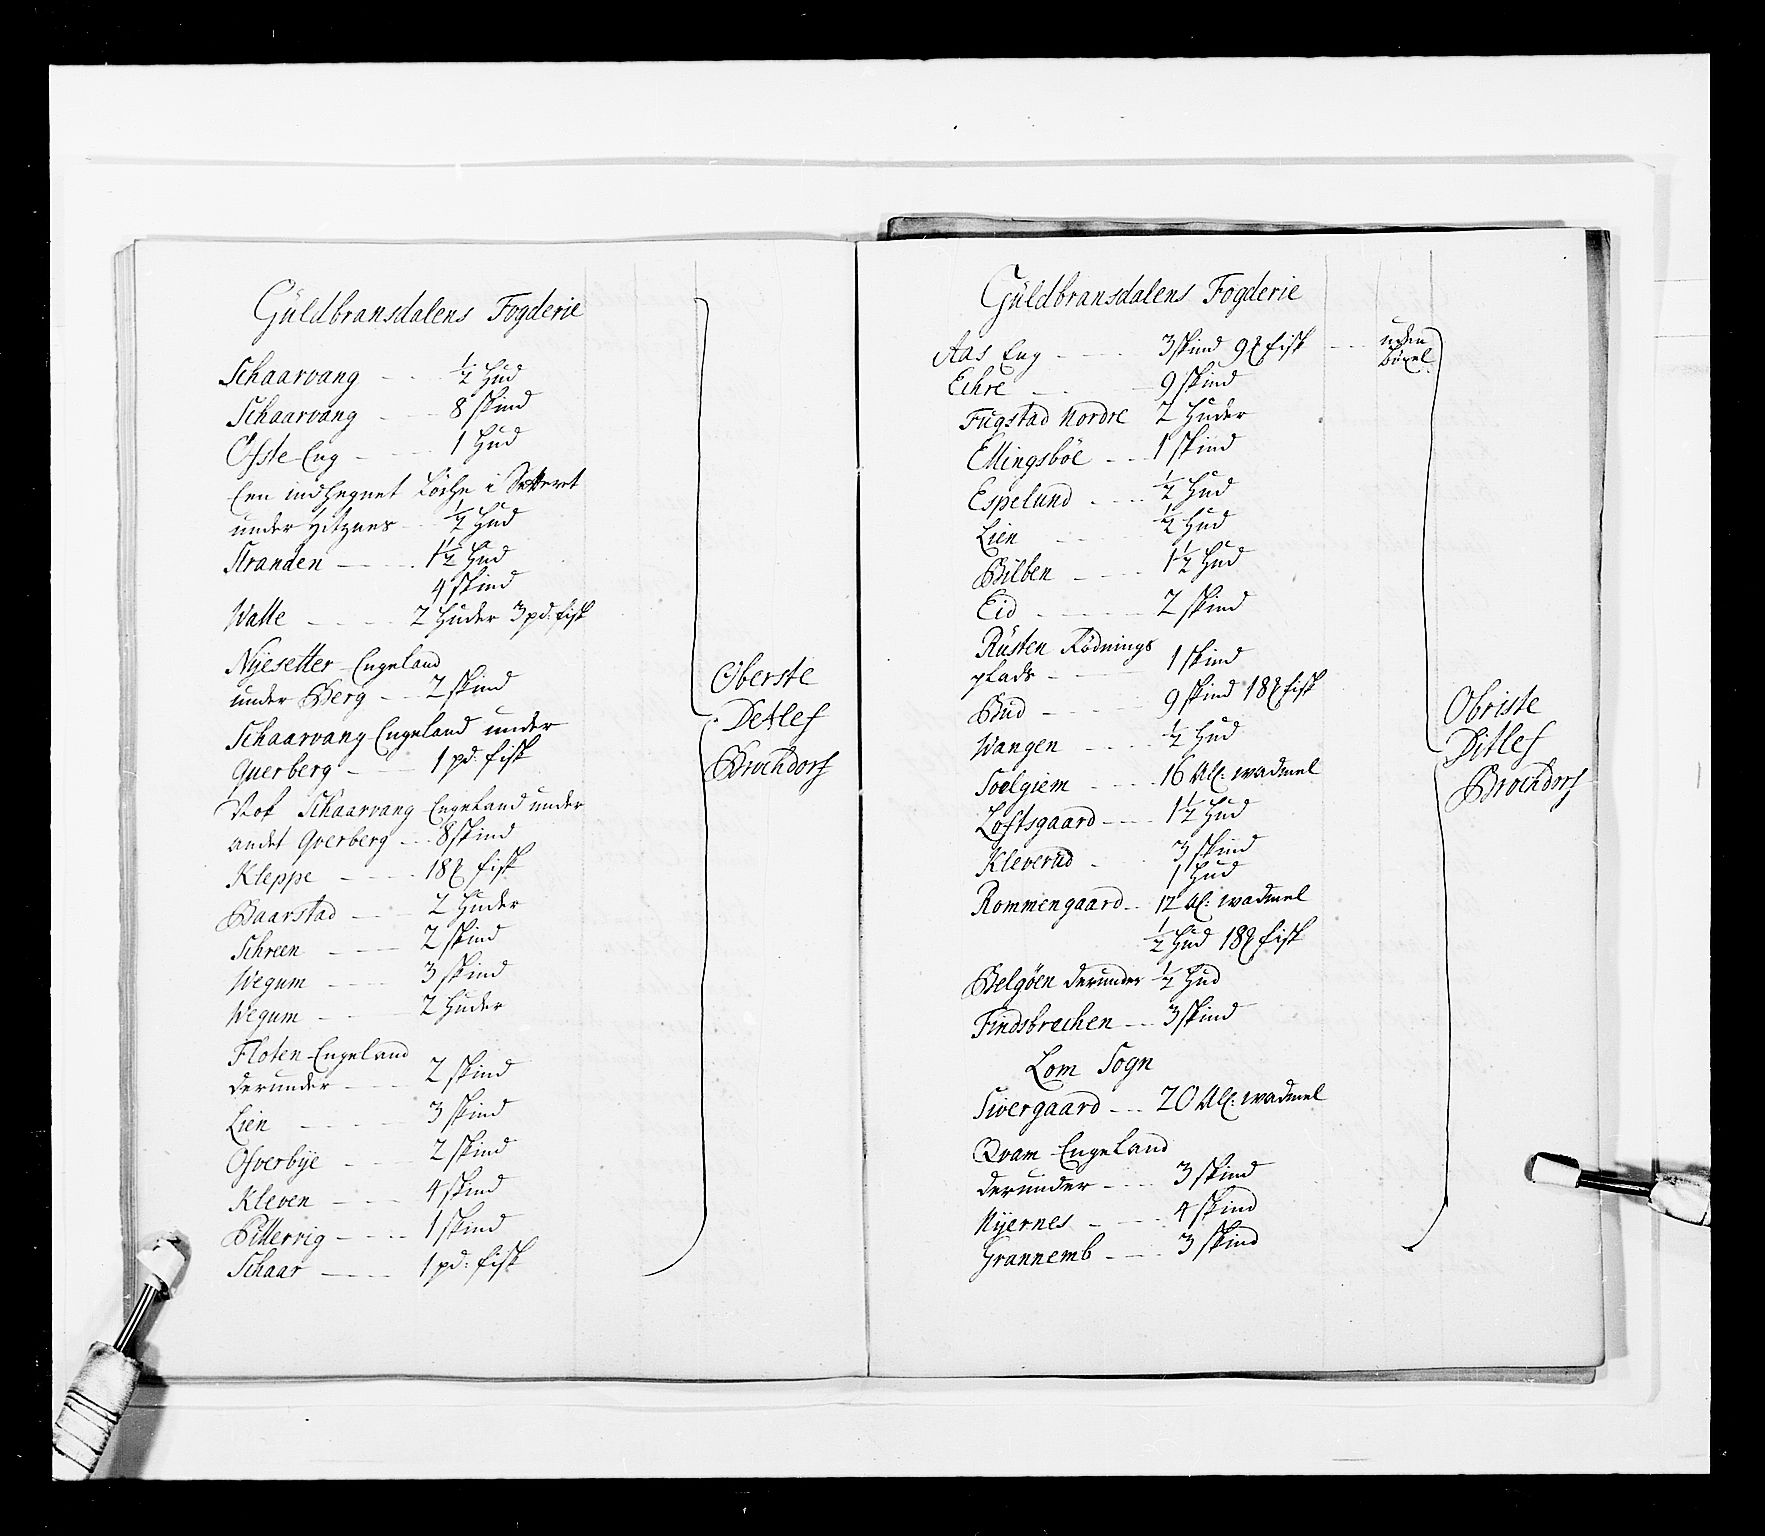 Güldbransdalens Fogderie
Schaarvang - - - ½ Hud
Schaarvang - - - 8 skind
Ofste Eng - - - 1 Hud
Een indhegnet Löche i
under - - ½ Hud
Stranden - - - 1½ Hud
4 skind
Walle - - - 2 Huder 3 pd: fisk
Nÿesetter Engeland
under Berg - - 2 skind
Schaarvang Engeland under
Qverberg - - - 1 pd: fisk
Noch Schaarvang Engeland under
andet Qverberg - - 8 skind
Kleppe - - - 18 ℔ fisk
Baarstad - - 2 Huder
Schreen - - - 2 skind
Wegum - - - 3 skind
Wegum - - - 2 Huder
Floten Engeland
derunder - - - 2 skind
Lien - - - 3 skind
Ofverbÿe - - - 2 skind
Kleven - - - 4 skind
Pillerviig - - - 1 skind
Schaar - - - 1 pd: fisk
Oberste
Detlef
Brochdorf
Güldbransdalens Fogderie
Aas Eng - - - 3 skind 9 ℔ fisk - - - uden
böxel.
Echre - - - 9 skind
Fugstad Nordre 2 Huder
Ellingsböe - - 1 skind
Espelund - - - ½ Hud
Lien - - - ½ Hud
Bilben - - - 1½ Hud
Eid - - - 2 skind
Rüsten Rödnings
plads - - - 1 skind
Bud - - - 9 skind 18 ℔ fisk
Wangen - - - ½ Hud
Soelgiem - - - 16 All: wadmel
Loftsgaard - - - 1½ Hud
Kleverud - - 3 skind
1 Hud
Rommengaard - - 12 Al: wadmel
½ Hud 18 ℔ fisk
Belgöen derunder ½ Hud
Findsbrechen - - 3 skind
Lom Sogn
Sivergaard - - 20 All: wadmel
Qvam Engeland
derunder - - - 3 skind
Nÿernes - - - 4 skind
Grannemb - - - 3 skind
Obriste
Ditlef
Brochdorf